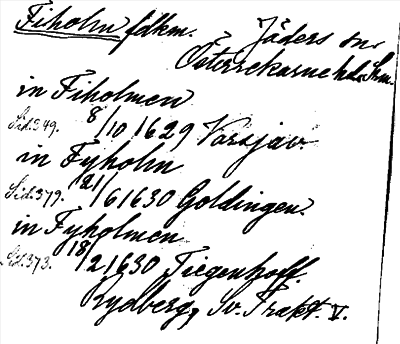 Fiholm fdkm. Jäders sn.
Österrekarne hd. Skm.
in Fiholmen
Sid. 349. 8/10 1629 Varsjav.
in Fyholm
Sid. 379. 21/6 1630 Goldingen.
in Fyholmen
Sid. 373. 18/2 1630 Tiegenhoff.
Rydberg, Sv. Trakt. V.